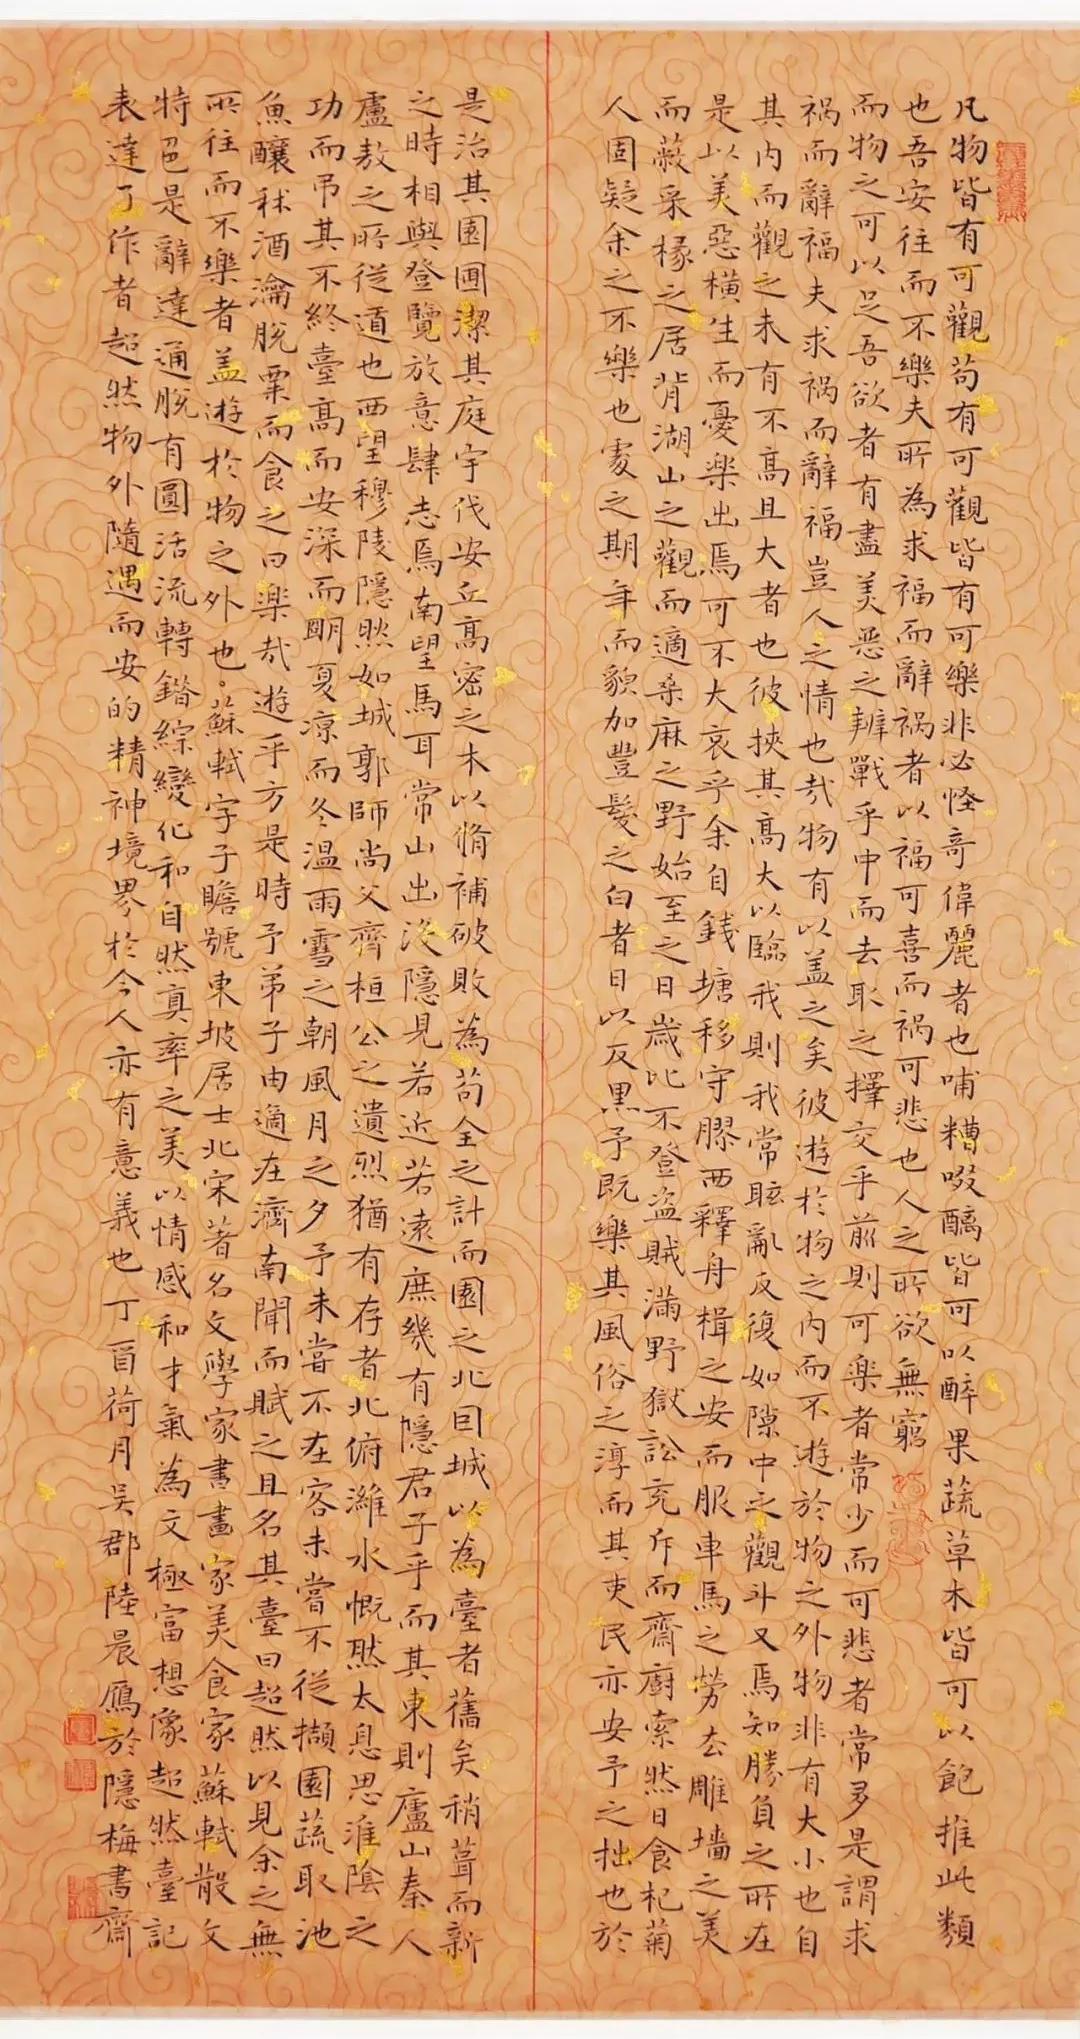 凡物皆有可觀苟有可觀皆有可樂非必怪奇偉麗者也哺糟啜醨皆可以醉果蔬草木皆可以飽推此類
也吾安往而不樂夫所為求福而辭禍者以福可喜而禍可悲也人之所欲無窮
而物之可以足吾欲者有盡美惡之辨戰乎中而去取之擇交乎前則可樂者常少而可悲者常多是謂求
禍而辭福夫求禍而辭福豈人之情也哉物有以盖之矣彼遊於物之内而不遊於物之外物非有大小也自
其内而觀之未有不高且大者也彼挾其高大以臨我則我常眩亂反復如隙中之觀斗又焉知勝負之所在
是以美惡橫生而憂樂出焉可不大哀乎余自錢塘移守膠西釋舟楫之安而服車馬之勞去雕墻之美
而蔽采椽之居背湖山之觀而適桑麻之野始至之日歲比不登盜賊滿野獄訟充斥而齋廚索然日食杞菊
人固疑余之不樂也處之期年而貌加豐髮之白者日以反黑予既樂其風俗之淳而其吏民亦安予之拙也於
是治其園圃潔其庭宇伐安丘高密之木以脩補破敗為苟全之計而園之北因城以為臺者舊矣稍葺而新
之時相與登覽放意肆志焉南望馬耳常山出沒隱見若近若遠庶幾有隱君子乎而其東則廬山秦人
盧敖之所從遁也西望穆陵隱然如城郭師尚父齊桓公之遺烈猶有存者北俯濰水慨然太息思淮陰之
功而弔其不終臺高而安深而明夏凉而冬温雨雪之朝風月之夕予未嘗不在客未嘗不從擷園蔬取池
魚釀秫酒瀹脫粟而食之曰樂哉遊乎方是時予弟子由適在濟南聞而賦之且名其臺曰超然以見余之無
所往而不樂者盖遊於物之外也。蘇軾字子瞻號東坡居士北宋著名文學家書畫家美食家蘇軾散文
特色是辭達通脫有圓活流轉錯綜變化和自然真率之美以情感和才氣為文極富想像超然臺記
表達了作者超然物外隨遇而安的精神境界於今人亦有意義也丁酉荷月吴郡陸晨雁於隱梅書齋